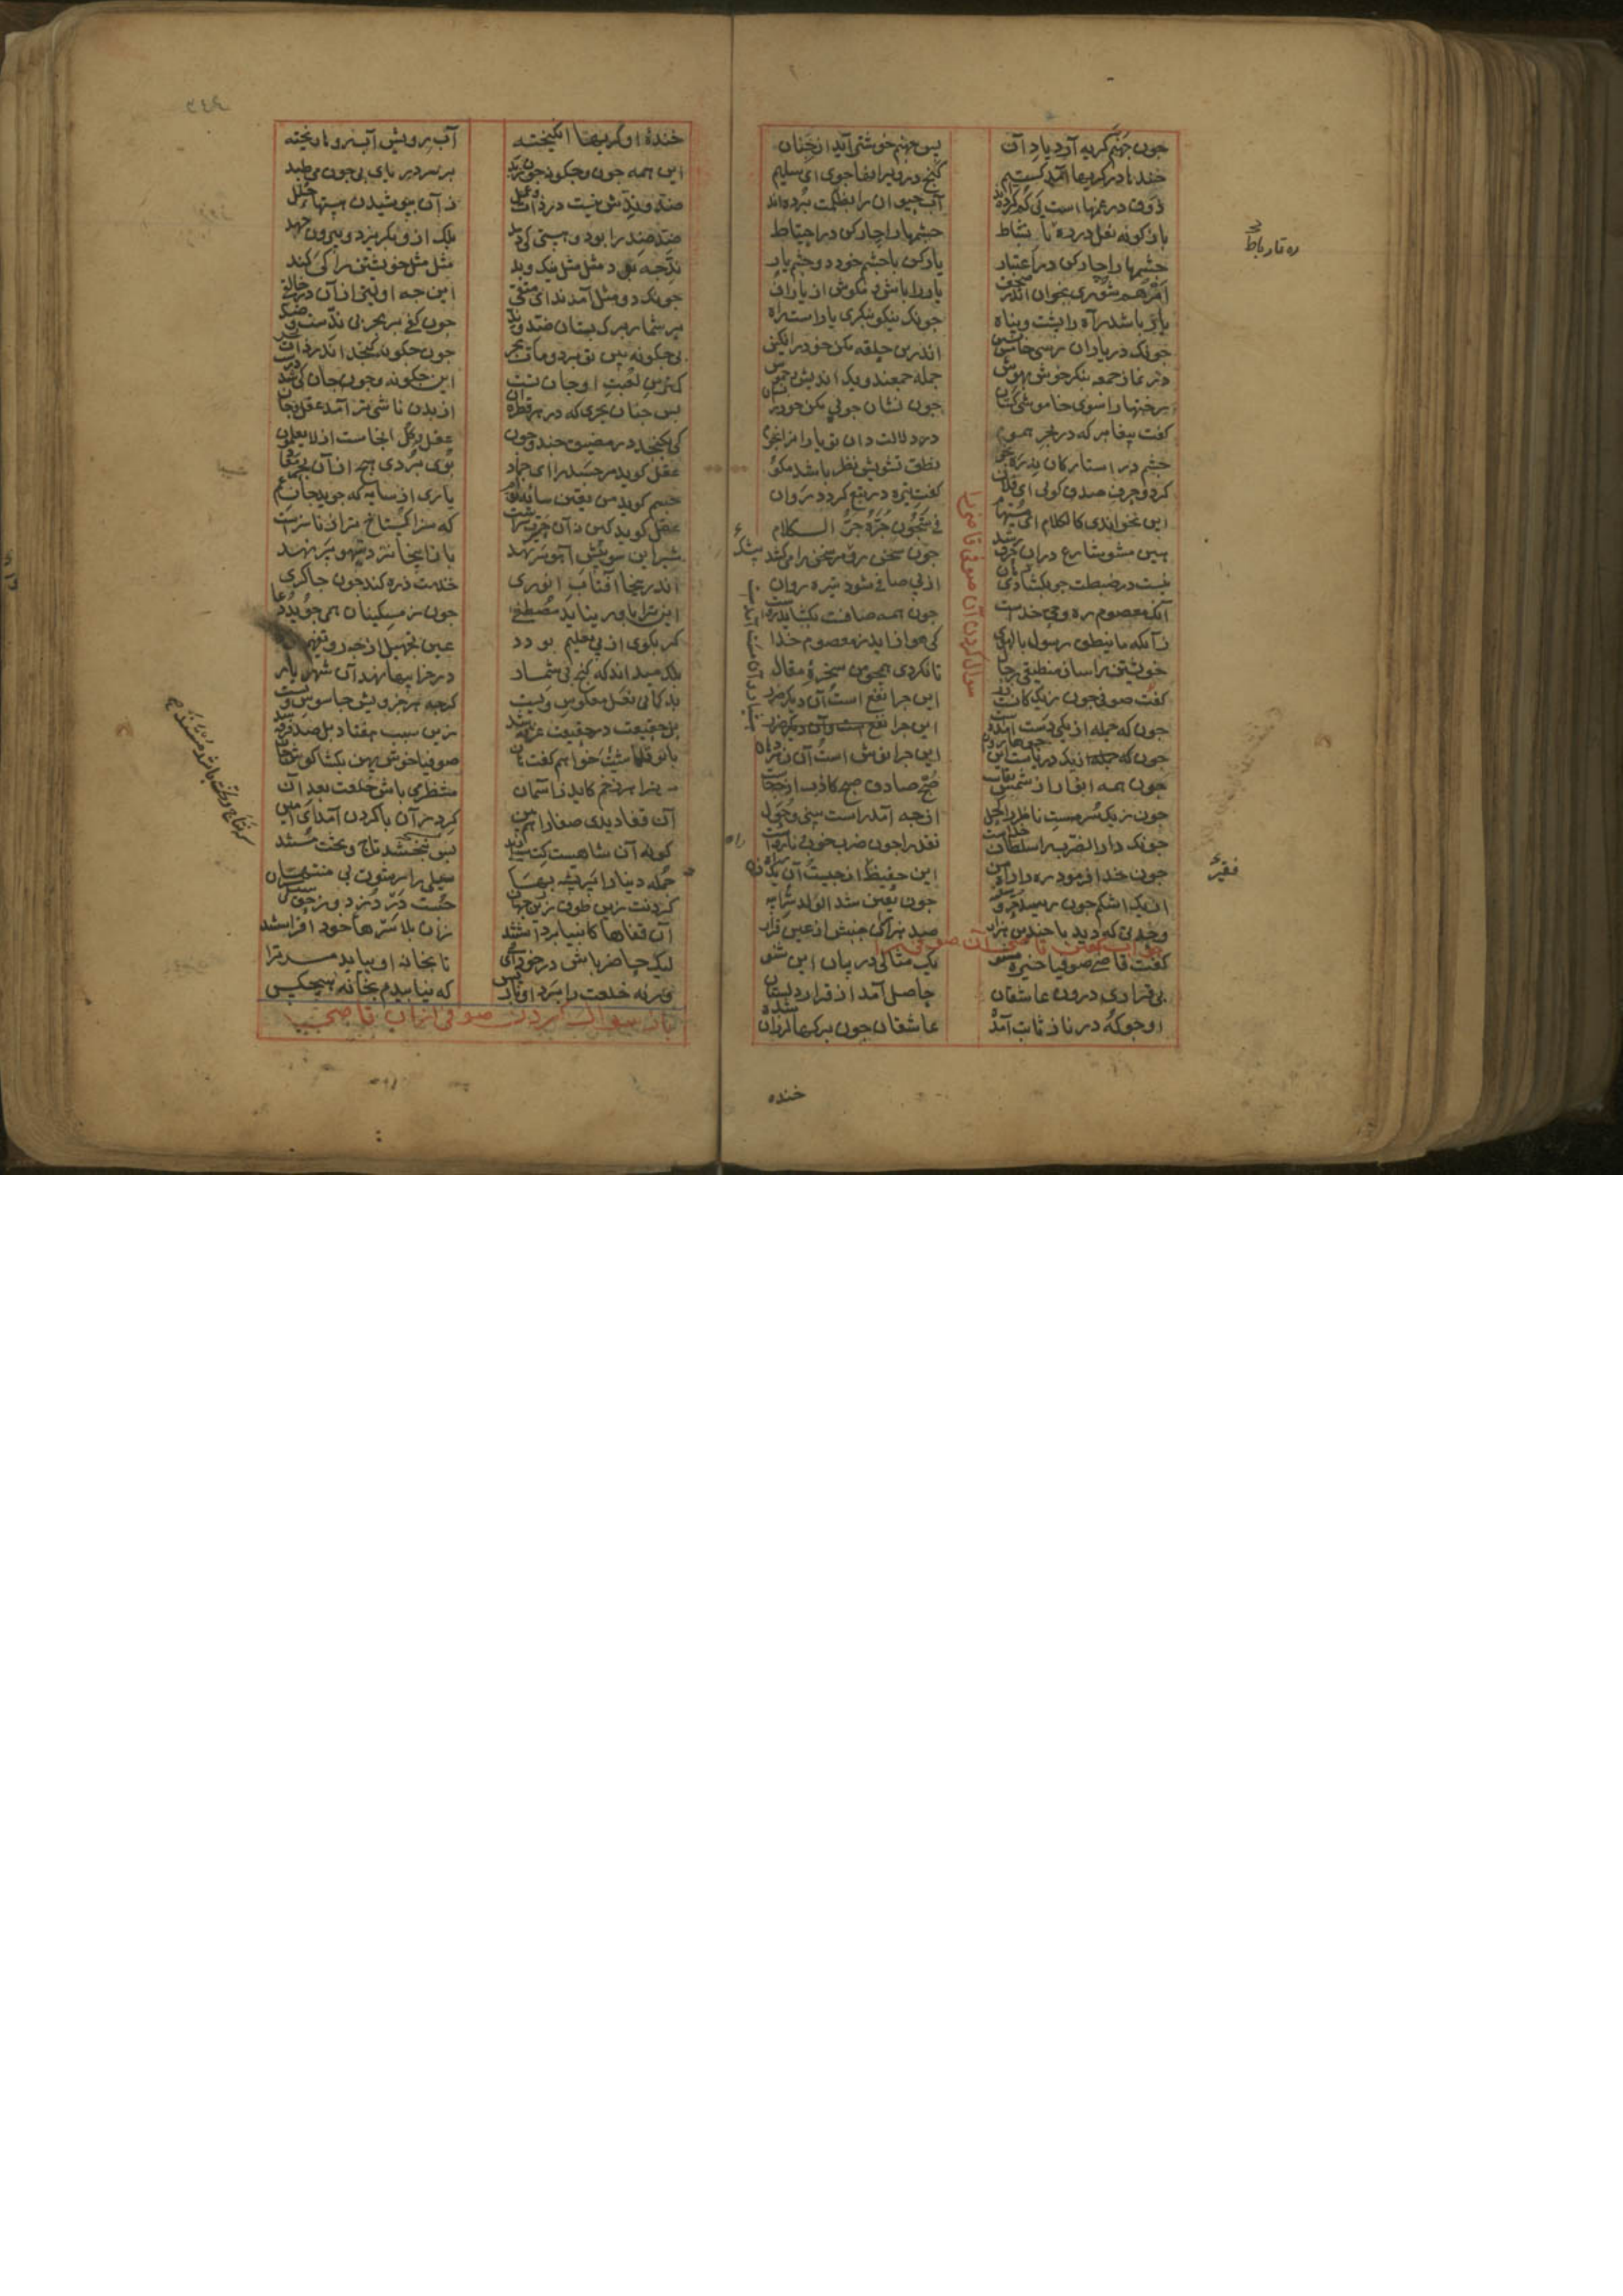 چون جهنم کریه آرد یاد آن پس جهنم خوشتر آید از جنان
خندها در کریها آمد کتیم کنج در ویرانها جوی ای سلیم
ذوق در غمهاست پی کم کرده‌اند آب حیوان را بظلمت برده‌اند
بازکونه نعل در ره تا رباط چشمها را چار کن در احتیاط
چشمها را چار کن در اعتبار یار کن با چشم خود دو چشم یار
امرهم شوری بخوان اندر صحف یار را باش و مکوش از ناز اف
یار باشد راه را پشت و پناه چونک نیکو بنکری یارست راه
چونک در یاران رسی خامش نشین اندرین حلقه مکن خود را نکین
در نماز جمعه بنکر خوش بهوش جمله جمعند و یک اندیشه خموش
رختها را سوی خاموشی کشان چون نشان جویی مکن خود را نشان
کفت پیغامبر که در بحر هموم در دلالت دان تو یاران را نجوم
چشم در استارکان نه ره بجو نطق تشویش نظر باشد مکو
کر دو حرف صدق کویی ای فلان کفت تیره در تبع کردد روان
این نخواندی کالکلام ای مستهام فی شجون جره جر الکلام
هین مشو شارع در آن حرف رشد چون سخن زو مر سخن را می‌کشد
نیست در ضبطت چو بکشادی دهان از پی صافی شود تیره روان
آنک معصوم ره وحی خداست چون همه صافست بکشاید رواست
زآنکه ما ینطق رسول بالهوی کی هوا زاید ز معصوم خدا
خویشتن را ساز منطیقی ز حال تا نکردی همچو من سخره مقال
سؤال کردن آن صوفی قاضی را
کفت صوفی چون ز یک کانست زر این چرا نفع است آن دیکر ضرر
چون که جمله از یکی دست آمده‌ست
چون که جمله از یک دریاست این جوها روان این چرا نوش است آن زهر دهان
چون همه انوار از شمس بقاست صبح صادق صبح کاذب از چه خاست
چون ز یک سرمه‌ست ناظر را کحل از چه آمد راست بینی و حول
چونک دار الضرب را سلطان خداست نقد را چون ضرب خوب و نارواست
چون خدا فرمود ره را راه من این حفیظ از چیست آن یک راه زن
از یک اشکم چون رسد حر و سفیه چون یقین شد الولد سر ابیه
وحدتی که دید با چندین هزار صد هزاران جنبش از عین قرار
جواب کفتن قاضی آن صوفی را
کفت قاضی صوفیا خیره مشو یک مثالی در بیان این شنو
بی قراری درون عاشقان حاصل آمد از قرار دلستان
او چو که در ناز ثابت آمده عاشقان چون برکها لرزان شده
خنده
خنده او کریها انکیخته آب رویش آب روها ریخته
این همه چون و چکونه چون زبد بر سر دریای بی چون می‌طپد
ضد و ندش نیست در ذات و عمل زآن بپوشیدن هستیها حلل
ضد ضد را بود و هستی کی دهد بلک ازو بکریزد و بیرون جهد
ند چه بود مثل مثل نیک و بد مثل مثل خویشتن را کی کند
چونک دو مثل آمدند ای متقی این چه اولیتر از آن در خالقی
بر شمار برک بستان ضد و ند چون کفی بر بحر بی ندست و ضد
بی چکونه بین تو برد و مات بحر چون چکونه کنجد اندر ذات بحر
کمترین لعبت او جان تست این چکونه و چون جان کی شد درست
پس چنان بحری که در هر قطره آن از بدن ناشی‌تر آمد عقل و جان
کی بکنجد در مضیق چند و چون عقل کل آنجاست از لا یعلمون
عقل کوید مر جسد را ای جماد بوی بردی هیچ از آن بحر معاد
جسم کوید من یقین سایه توم یاری از سایه که جوید جان عم
عقل کوید کین نه آن حیرت سراست که سزا کستاخ‌تر از ناسزاست
شیر این سو پیش آهو سر نهد باز اینجا نزد تیهو پر نهد
اندر اینجا آفتاب انوری خدمت ذره کند چون چاکری
این ترا باور نیاید مصطفی چون ز مسکینان همی جوید دعا
کر بکوی از پی تعلیم بود عین تجهیل از چه رو تفهیم بود
بلک میداند که کنج بی شمار در خرابیها نهد آن شهریار
بدکمانی نعل معکوس ویست کرچه هر جزویش جاسوس ویست
بل حقیقت در حقیقت غرقه شد زین سبب هفتاد بل صد فرقه شد
با تو قلماشیت خواهم کفت هان صوفیا خوش پهن بکشا کوش جان
مر ترا هر زخم کاید ز آسمان منتظر می‌باش خلعت بعد آن
آن قفا دیدی صفا را هم ببین کرد ران با کردن آمد ای امین
کو نه آن شاهست کت سیلی زند پس نبخشد تاج و تخت مستند
جمله دنیا را پر پشه بها سیلی را رشوت بی منتها
کردنت زین طوق زرین جهان چست در دزد و ز حق سیلی ستان
آن قفاها کانبیا برداشتند زان بلا سرهای خود افراشتند
لیک حاضر باش در خود ای فتی تا بخانه او بیابد مر ترا
ورنه خلعت را برد او باز پس که نیابیدم بخانه هیچ کس
باز سؤال کردن صوفی از آن قاضی
ره تا رباط
فقیر